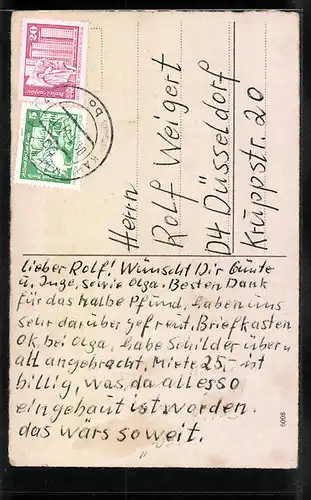 20
5
Herrn
Rolf Weigert
D4 Düsseldorf
Kruppstr. 20
Lieber Rolf! Wünscht Dir Günte
u. Inge, sowie Olga. Besten Dank
für das halbe Pfund, haben uns
sehr darüber gefreut. Briefkasten
Ok, bei Olga, habe Schilder über u
all angebracht, Miete 25,- ist
billig, was da allesso
eingebaut ist worden.
das wärs soweit.
6008